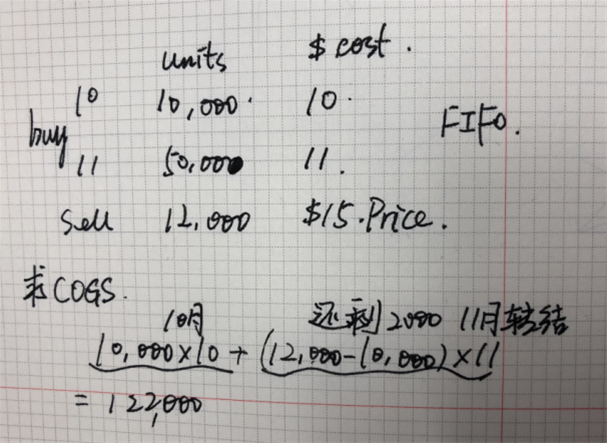 units $ cost.
10 10,000. 10.
buy FIFO.
11 50,000 11.
sell 12,000 $15.Price.
求COGS.
10月 还剩2000 11月转结
10,000×10+(12,000-10,000)×11
=122,000